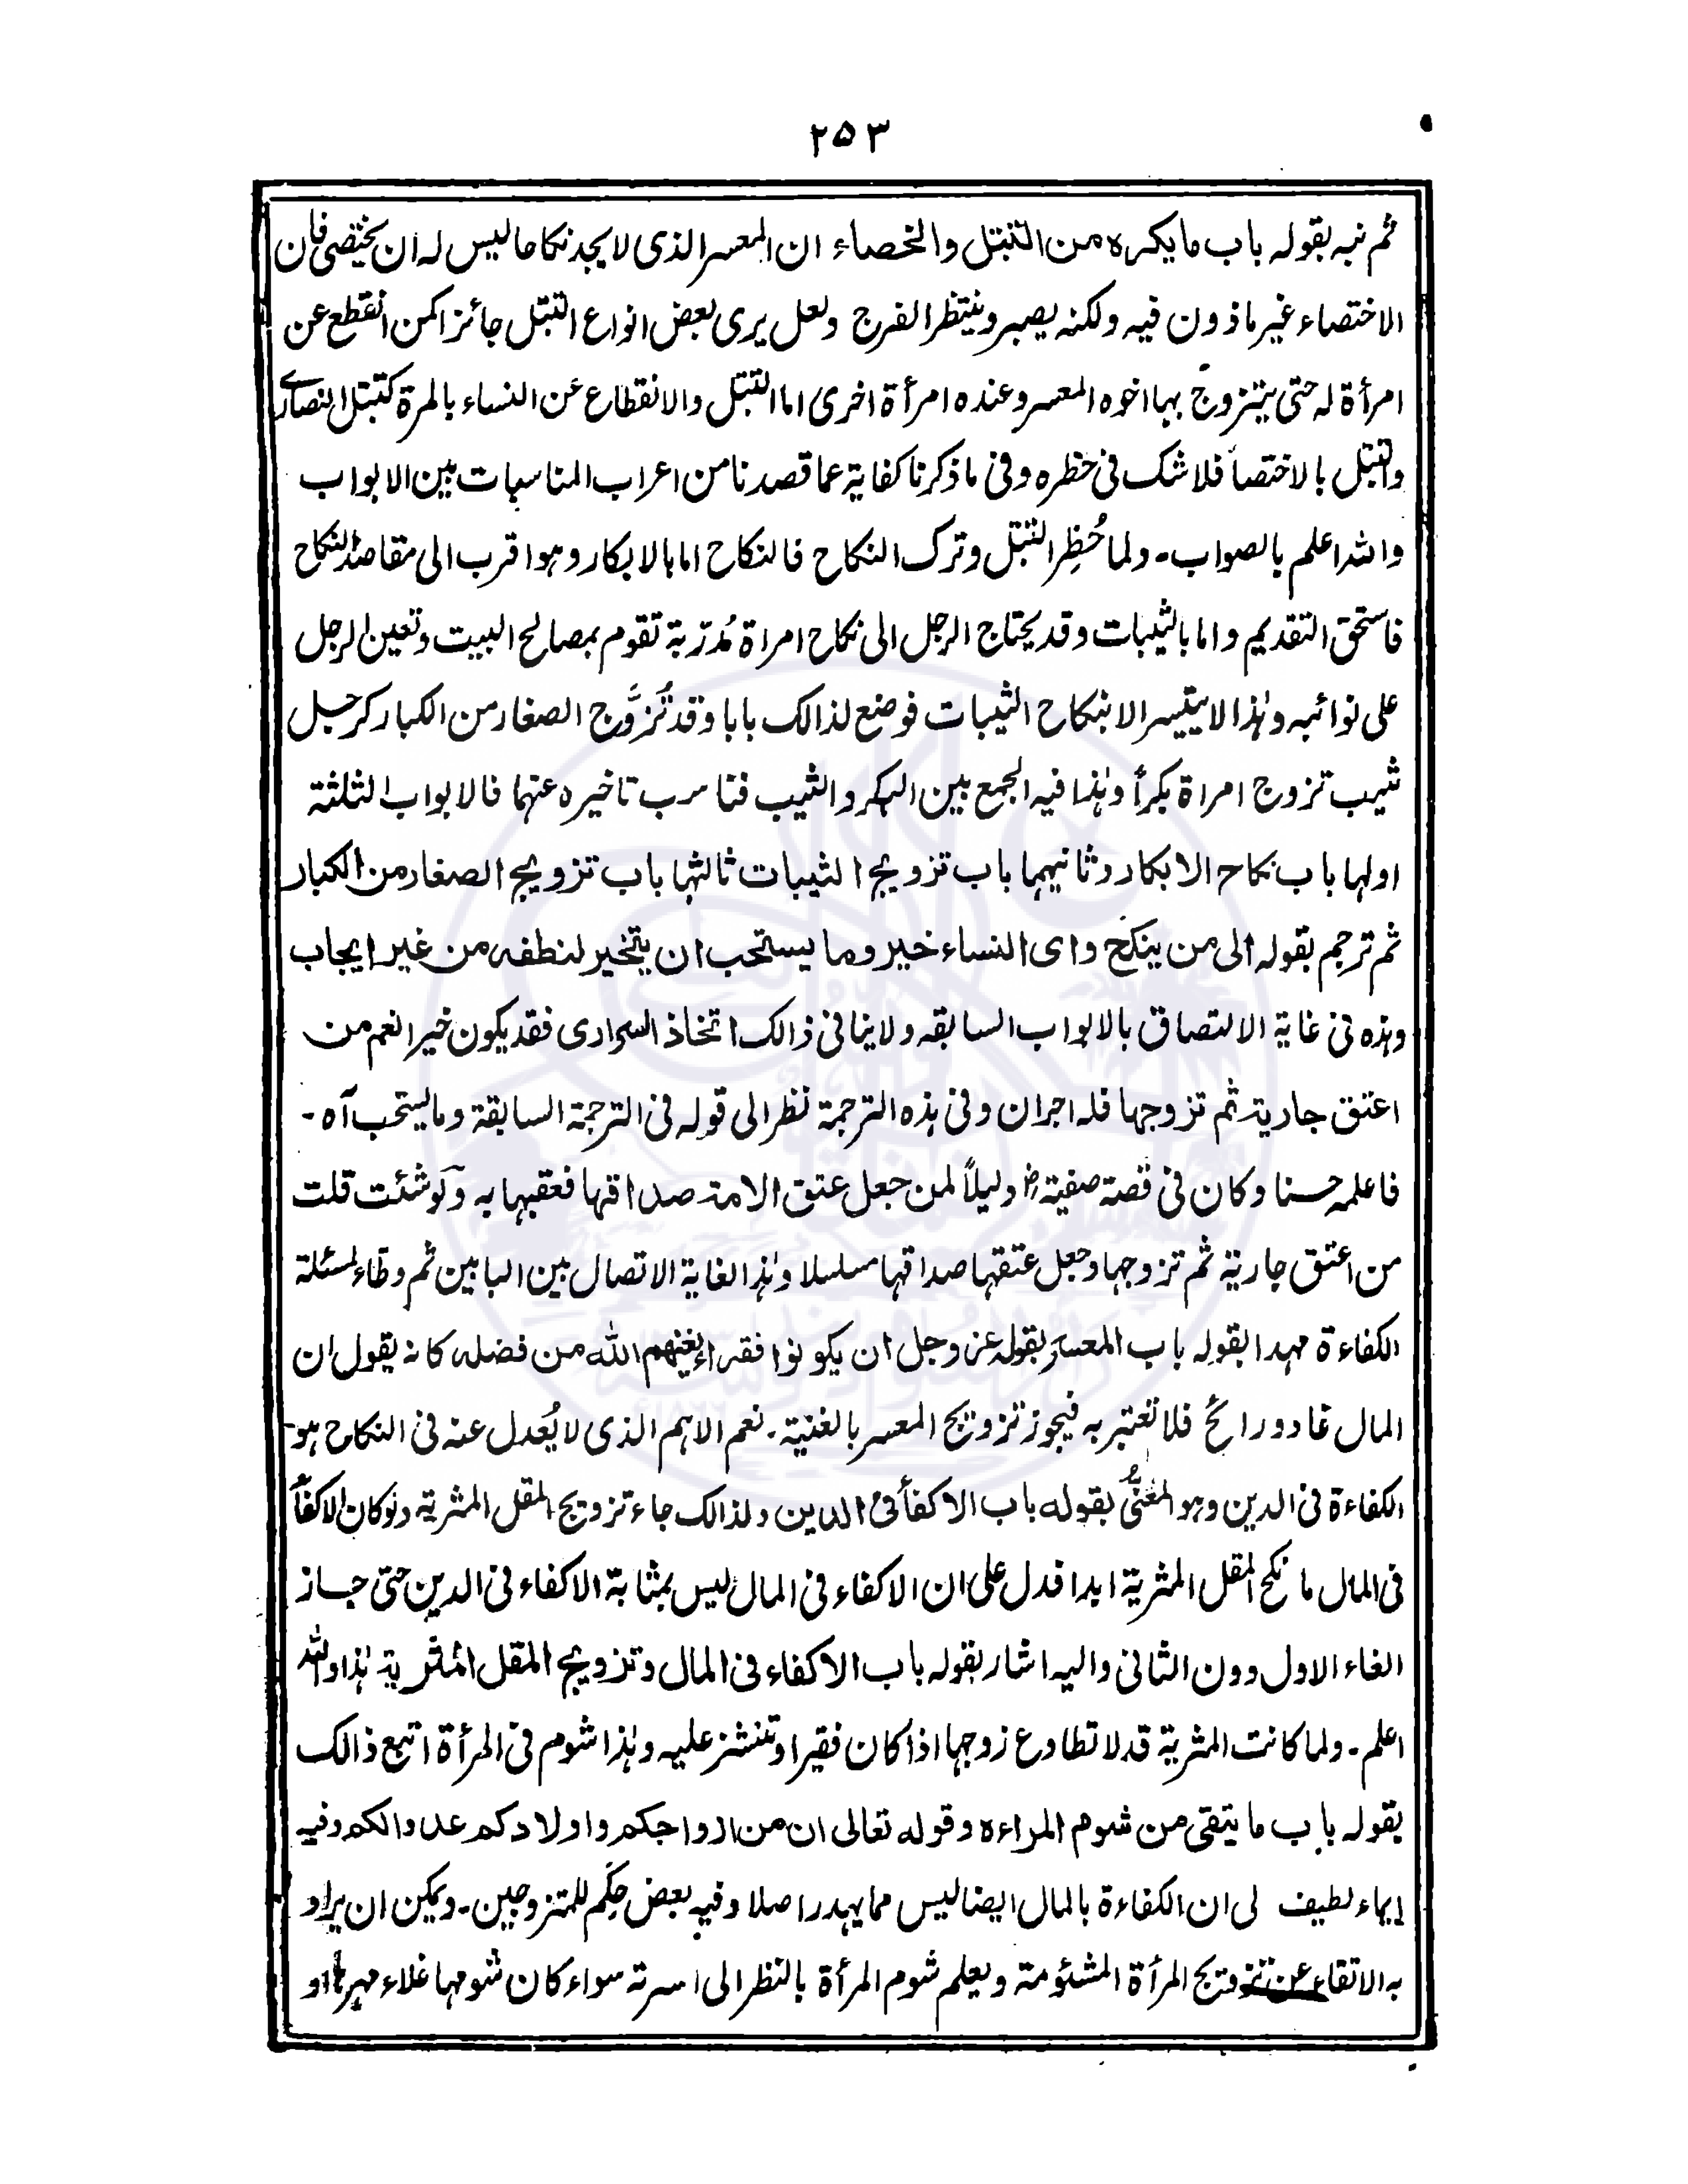 ۲۵۳
ثم نبه بقوله باب ما يكره من التبتل والخصاء ان المعسر الذى لا يجد نكاحا ليس له ان يختصى فان
الاختصاء غير ماذون فيه ولكنه يصبر وينتظر الفرج ولعل يرى بعض انواع التبتل جائزا كمن انقطع عن
امرأة له حتى يتزوج بها اخوه المعسر وعنده امرأة اخرى اما التبتل والانقطاع عن النساء بالمرة كتبتل النصارى
والتبتل بالاختصاء فلا شك فى حظره وفى ما ذكرنا كفاية عما قصدنا من اعراب المناسبات بين الابواب
والله اعلم بالصواب۔ ولما حُظِر التبتل وترك النكاح فالنكاح اما بالابكار وهو اقرب الى مقاصد النكاح
فاستحق التقديم واما بالثيبات وقد يحتاج الرجل الى نكاح امراة مُدرّبة تقوم بمصالح البيت وتعين الرجل
على نوائبه وهٰذا لا يتيسر الا بنكاح الثيبات فوضع لذالك بابا وقد تُزَوَّج الصغار من الكبار كرجل
ثيب تزوج امراة بكراً وهٰذا فيه الجمع بين البكر والثيب فناسب تاخيره عنهما فالابواب الثلثة
اولها باب نكاح الابكار وثانيهما باب تزويج الثيبات ثالثها باب تزويج الصغار من الكبار
ثم ترجم بقوله الى من ينكح واى النساء خير وما يستحب ان يتخير لنطفه من غير ايجاب
وهذه فى غاية الالتصاق بالابواب السابقه ولا ينافى ذالك اتخاذ السرارى فقد يكون خير النعم من
اعتق جارية ثم تزوجها فله اجران وفى هذه الترجمة نظر الى قوله فى الترجمة السابقة وما يستحب آه۔
فاعلمه حسنا وكان فى قصة صفيةؓ دليلاً لمن جعل عتق الامة صداقها فعقبها به ولو شئت قلت
من اعتق جارية ثم تزوجها وجعل عتقها صداقها مسلسلا وهٰذا لغاية الاتصال بين البابين ثم وطاء لمسئلة
الكفاءة مهدا بقوله باب المعسر بقوله عز وجل ان يكونوا فقراء يغنيهم الله من فضله كانه يقول ان
المال غاد ورائح فلا تعتبر به فيجوز تزويج المعسر بالغنية۔ نعم الاهم الذى لا يُعدل عنه فى النكاح هو
الكفاءة فى الدين وهو المَعنىُّ بقوله باب الاكفأ فى الدين ولذالك جاء تزويج المقل المثرية ولو كان الاكفأ
فى المال ما نكح المقل المثرية ابدا فدل على ان الاكفاء فى المال ليس بمثابة الاكفاء فى الدين حتى جاز
الغاء الاول دون الثانى واليه اشار بقوله باب الاكفاء فى المال وتزويج المقل المثرية هٰذا والله
اعلم۔ ولما كانت المثرية قد لا تطاوع زوجها اذا كان فقيرا وتنشز عليه وهٰذا شوم فى المرأة اتبع ذالك
بقوله باب ما يتقى من شوم المراءه وقوله تعالى ان من ازواجكم واولادكم عدوالكم وفيه
ايماء لطيف لى ان الكفاءة بالمال ايضا ليس مما يهدر اصلا وفيه بعض حِكَم للمتزوجين۔ ويمكن ان يراد
به الاتقاء عن تزويج المرأة المشئومة ويعلم شوم المرأة بالنظر الى اسرته سواء كان شومها غلاء مهرها او